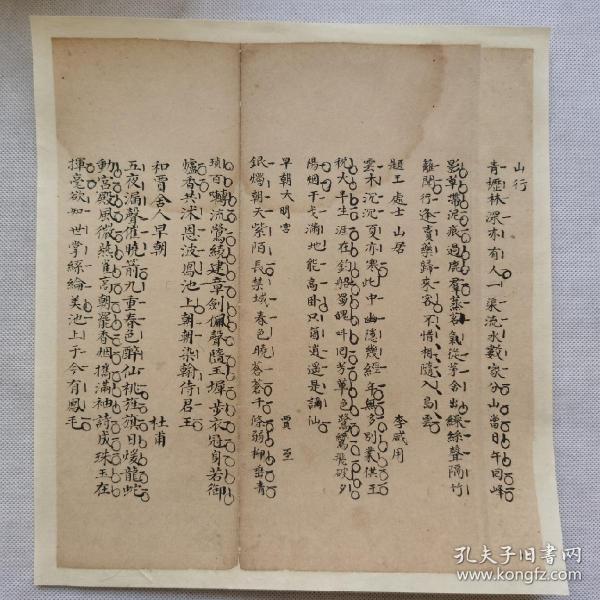 山行
青壢林深亦有人一渠流水數家分山當日午回峰
影草帶泥痕過鹿羣蒸茗氣從茅舍出繰絲聲隔竹
籬聞行逢賣藥歸來客不惜相隨入島雲
題王處士山居 李咸用
雲木沉沉夏亦寒此中幽隱幾經年無多別業供王
稅大半生涯在釣船蜀魄叫回芳草色鷺鷥飛破夕
陽烟干戈滿地能高卧只箇逍遥是謫仙
早朝大明宮 賈至
銀燭朝天紫陌長禁城春色曉蒼蒼千條弱柳垂青
瑣百囀流鶯繞建章劍佩聲隨玉墀步衣冠身若御
爐香共沐恩波鳳池上朝朝染翰侍君王
和賈舍人早朝 杜甫
五夜漏聲催曉箭九重春色醉仙桃旌旗日煖龍蛇
動宮殿風微燕雀高朝罷香烟攜滿袖詩成珠玉在
揮毫欲知世掌絲綸美池上于今有鳳毛
孔夫子旧书网
www.kongfz.com